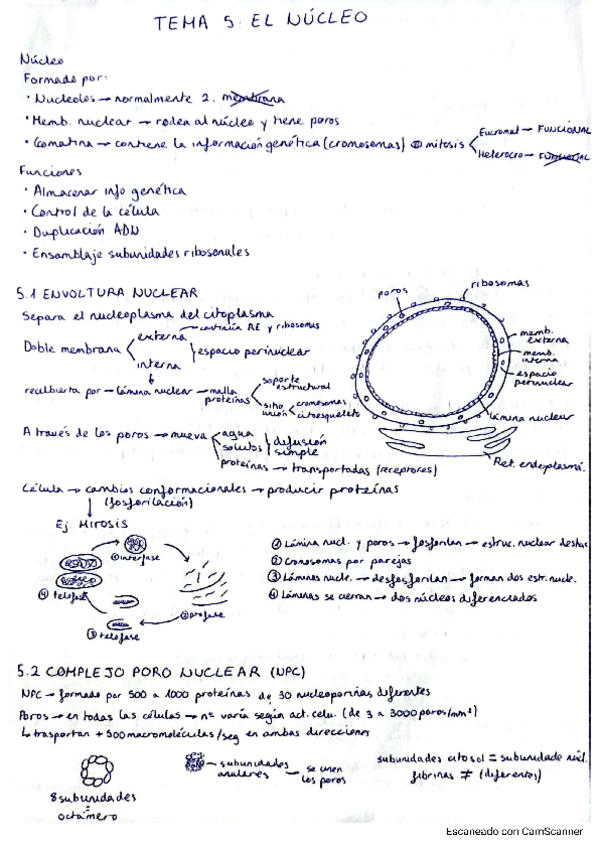 TEMA 5: EL NÚCLEO
Núcleo
Formado por:
· Nucleolos → normalmente 2. membrana
· Memb. nuclear → rodea al núcleo y tiene poros
· Cromatina → contiene la información genética (cromosomas) mitosis
Eucromat → FUNCIONAL
Heterocro → FUNCIONAL
Funciones
· Almacenar info genética
· Control de la célula
· Duplicación ADN
· Ensamblaje subunidades ribosomales
5.1 ENVOLTURA NUCLEAR
Separa el nucleoplasma del citoplasma
Doble membrana
externa → continúa RE y ribosomas
interna
espacio perinuclear
recubierta por → lámina nuclear → malla proteínas
soporte estructural
sitio unión
cromosomas
citoesqueleto
poros
ribosomas
memb. externa
memb. interna
espacio perinuclear
lámina nuclear
Ret. endoplasmá.
A través de los poros → mueve
agua
solutos
difusión simple
proteínas → transportadas (receptores)
Célula → cambios conformacionales → producir proteínas
(fosforilación)
Ej. MITOSIS
① interfase
② profase
③ telofase
④ telofase
① Lámina nucl. y poros → fosforilan → estruc. nuclear destruc
② Cromosomas por parejas
③ Láminas nucle. → desfosforilan → forman dos estr. nucle.
④ Láminas se cierran → dos núcleos diferenciados
5.2 COMPLEJO PORO NUCLEAR (NPC)
NPC → formado por 500 a 1000 proteínas de 30 nucleoporinas diferentes
Poros → en todas las células → nº varía según act. celu. (de 3 a 3000 poros/mm²)
↳ trasportan + 500 macromoléculas/seg en ambas direcciones
8 subunidades
=
octámero
→ subunidades anulares → se unen los poros
subunidades citosol = subunidade núcl.
fibrinas ≠ (diferentes)
Escaneado con CamScanner